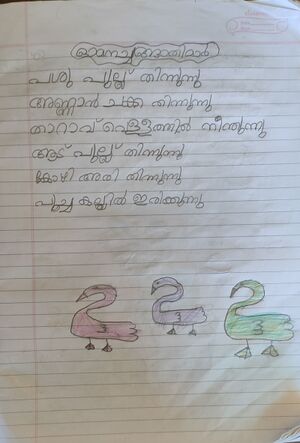 ഓമനച്ചങ്ങാതിമാർ
പശു പുല്ല് തിന്നുന്നു
അണ്ണാൻ ചക്ക തിന്നുന്നു
താറാവ് വെള്ളത്തിൽ നീന്തുന്നു
ആട് പുല്ല് തിന്നുന്നു
കോഴി അരി തിന്നുന്നു
പൂച്ച കല്ലിൽ ഇരിക്കുന്നു